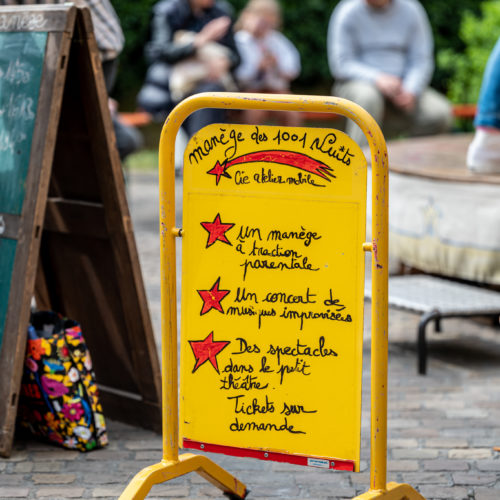 manège des 1001 Nuits
Cie atelier mobile
Un manège
à traction
parentale
Un concert de
musiques improvisées
Des spectacles
dans le petit
théâtre.
Tickets sur
demande